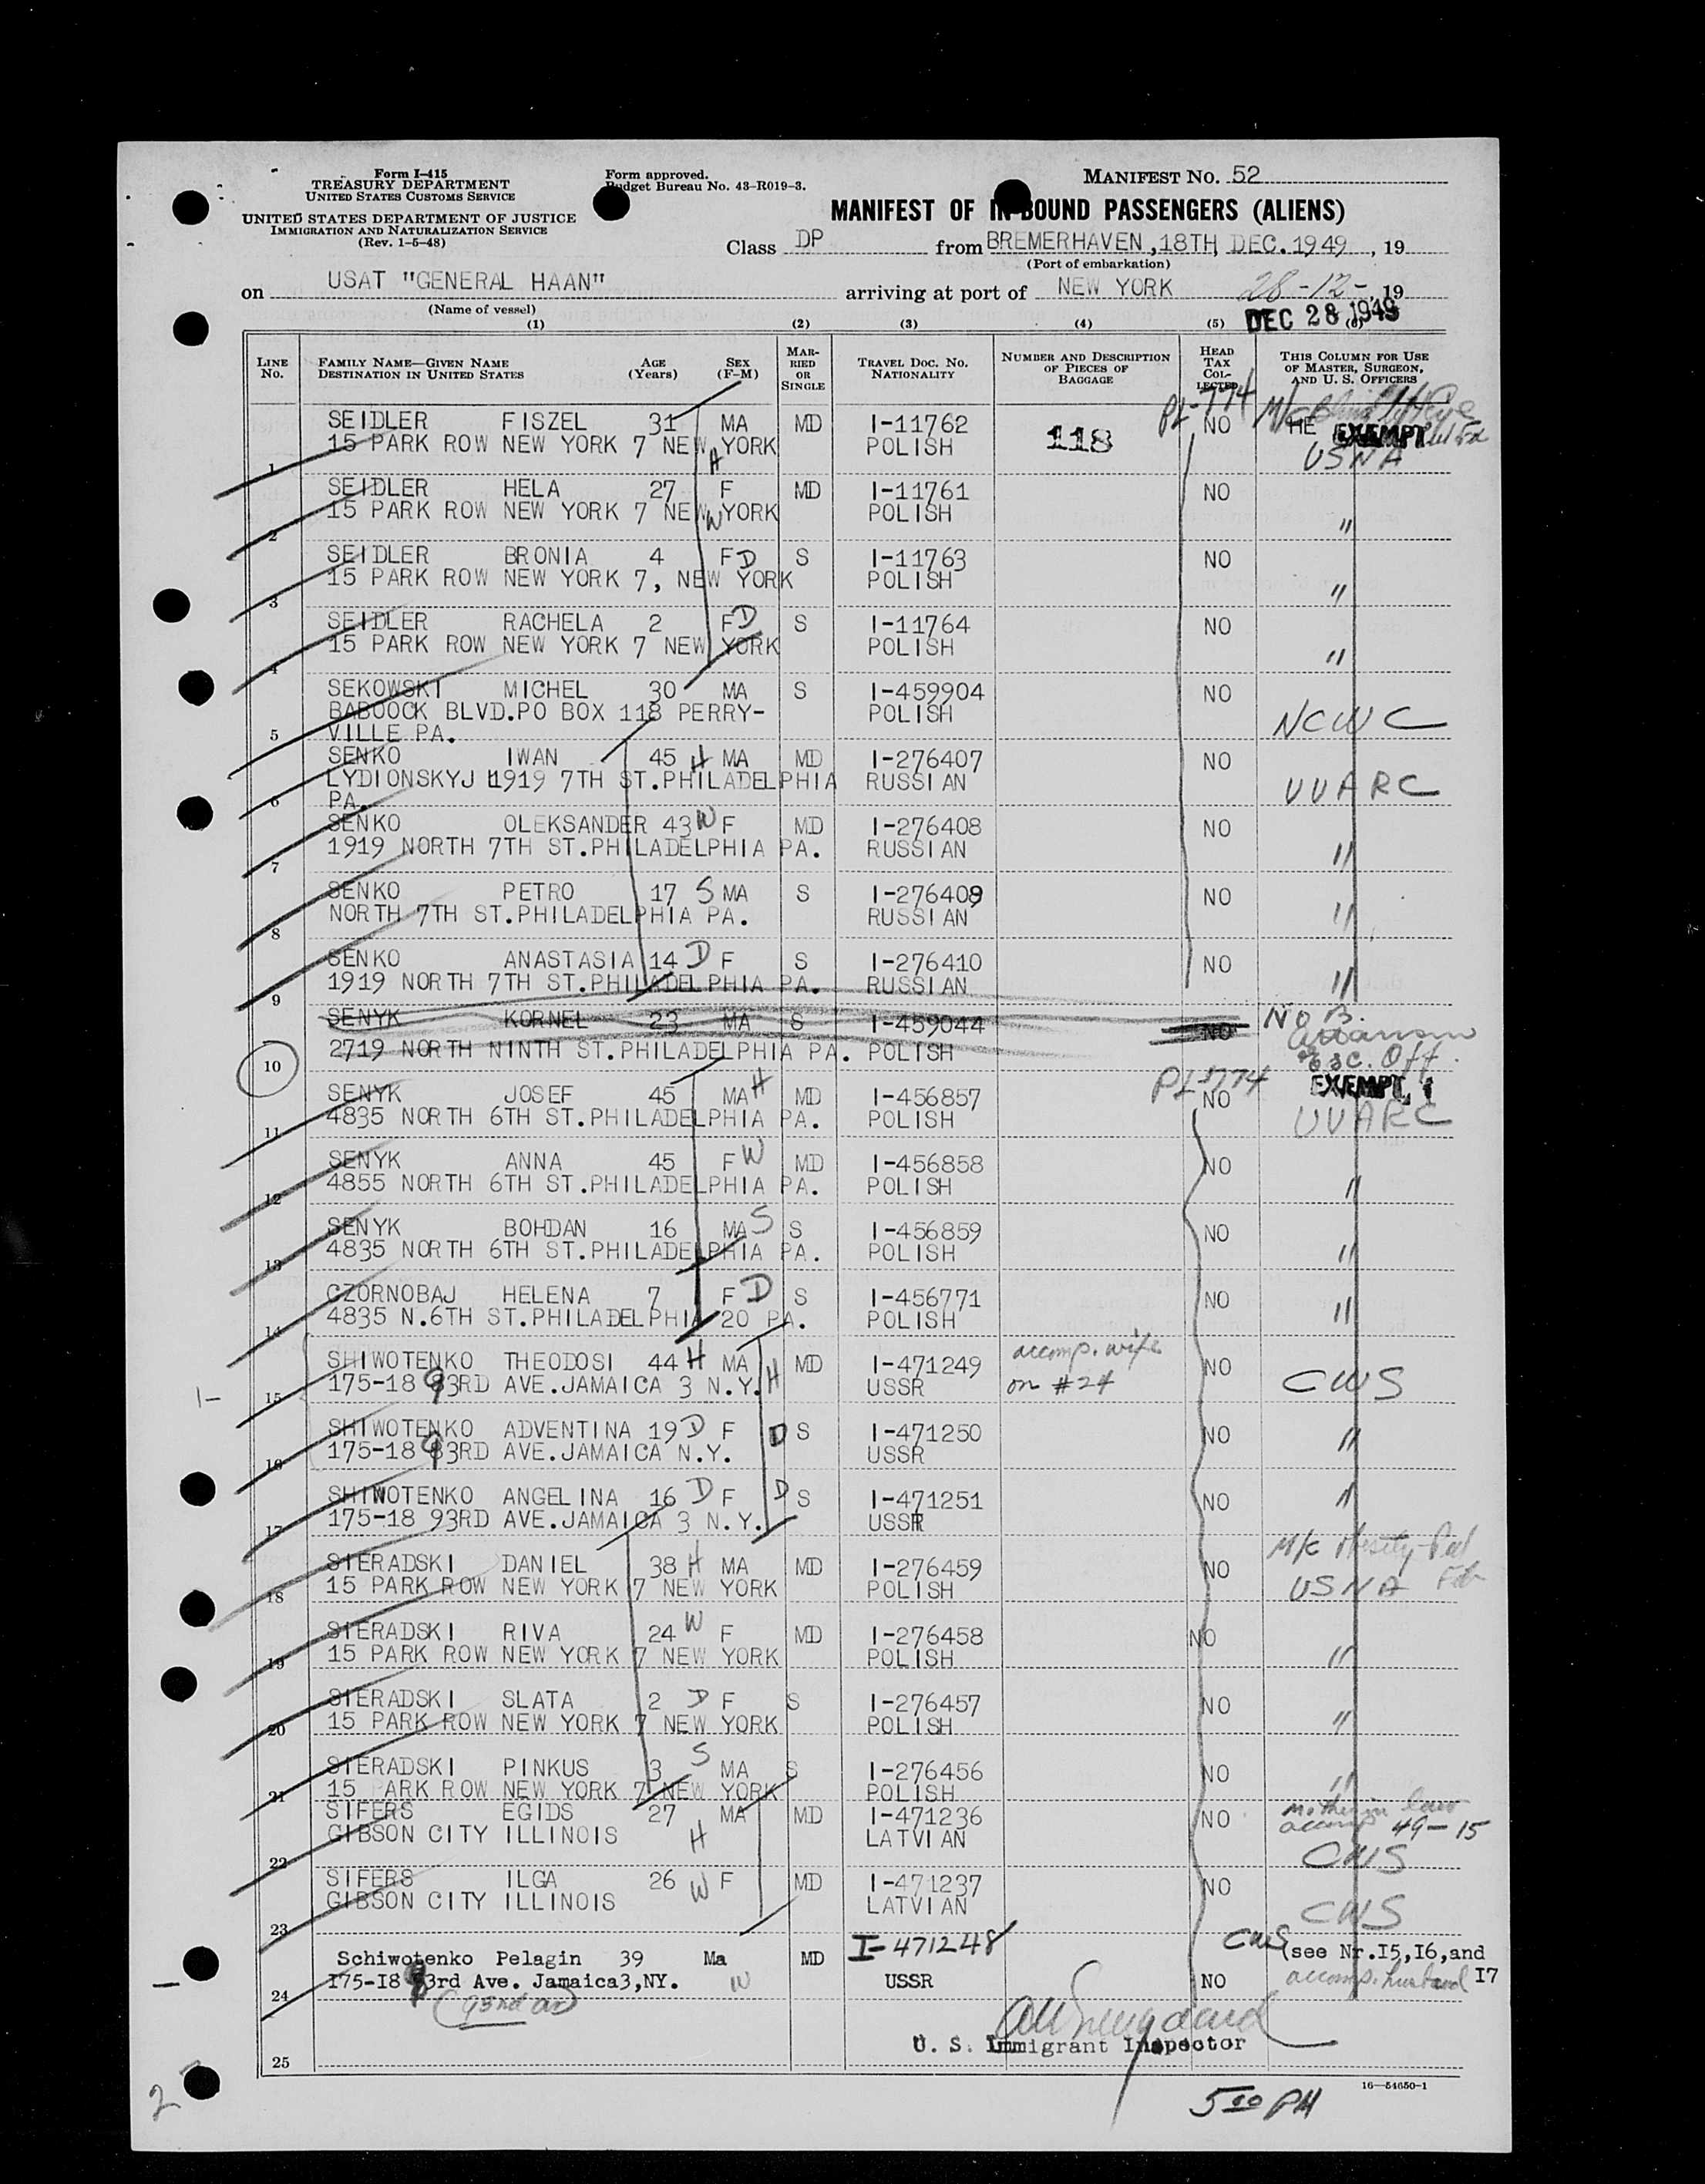 Form I-415
TREASURY DEPARTMENT
UNITED STATES CUSTOMS SERVICE
UNITED STATES DEPARTMENT OF JUSTICE
IMMIGRATION AND NATURALIZATION SERVICE
(Rev. 1-5-48)
Form approved.
Budget Bureau No. 43-R019-3.
MANIFEST NO. 52
MANIFEST OF INBOUND PASSENGERS (ALIENS)
Class DP from BREMERHAVEN, 18TH DEC. 1949, 19
(Port of embarkation)
on USAT "GENERAL HAAN" arriving at port of NEW YORK 28-12-, 19
(Name of vessel)
DEC 28 1949
(1) (2) (3) (4) (5) (6)
LINE No. FAMILY NAME—GIVEN NAME DESTINATION IN UNITED STATES AGE (Years) SEX (F-M) MARRIED OR SINGLE TRAVEL DOC. NO. NATIONALITY NUMBER AND DESCRIPTION OF PIECES OF BAGGAGE HEAD TAX COLLECTED THIS COLUMN FOR USE OF MASTER, SURGEON, AND U. S. OFFICERS
PL-774
SEIDLER FISZEL 31 MA MD I-11762 118 NO HE EXEMPT
1 15 PARK ROW NEW YORK 7 NEW YORK H POLISH USNA
SEIDLER HELA 27 F MD I-11761 NO
2 15 PARK ROW NEW YORK 7 NEW YORK W POLISH "
SEIDLER BRONIA 4 F D S I-11763 NO
3 15 PARK ROW NEW YORK 7, NEW YORK POLISH "
SEIDLER RACHELA 2 F D S I-11764 NO
4 15 PARK ROW NEW YORK 7 NEW YORK POLISH "
SEKOWSKI MICHEL 30 MA S I-459904 NO
BABOOCK BLVD.PO BOX 118 PERRY- POLISH NCWC
5 VILLE PA.
SENKO IWAN 45 H MA MD I-276407 NO
LYDIONSKYJ 1919 7TH ST.PHILADELPHIA RUSSIAN UUARC
6 PA.
SENKO OLEKSANDER 43 W F MD I-276408 NO
7 1919 NORTH 7TH ST.PHILADELPHIA PA. RUSSIAN "
SENKO PETRO 17 S MA S I-276409 NO
8 NORTH 7TH ST.PHILADELPHIA PA. RUSSIAN "
SENKO ANASTASIA 14 D F S I-276410 NO
9 1919 NORTH 7TH ST.PHILADELPHIA PA. RUSSIAN "
SENYK KORNEL 23 MA S I-459044 NO No B.
10 2719 NORTH NINTH ST.PHILADELPHIA PA. POLISH Esc. Off.
PL-774 EXEMPT
SENYK JOSEF 45 MA H MD I-456857 NO
11 4835 NORTH 6TH ST.PHILADELPHIA PA. POLISH UUARC
SENYK ANNA 45 F W MD I-456858 NO
12 4855 NORTH 6TH ST.PHILADELPHIA PA. POLISH "
SENYK BOHDAN 16 MA S S I-456859 NO
13 4835 NORTH 6TH ST.PHILADELPHIA PA. POLISH "
CZORNOBAJ HELENA 7 F D S I-456771 NO
14 4835 N.6TH ST.PHILADELPHIA 20 PA. POLISH "
SHIWOTENKO THEODOSI 44 H MA MD I-471249 accomp. wife NO
15 175-18 93RD AVE.JAMAICA 3 N.Y. H USSR on #24 CWS
SHIWOTENKO ADVENTINA 19 D F D S I-471250 NO
16 175-18 93RD AVE.JAMAICA N.Y. USSR "
SHIWOTENKO ANGELINA 16 D F D S I-471251 NO "
17 175-18 93RD AVE.JAMAICA 3 N.Y. USSR
SIERADSKI DANIEL 38 H MA MD I-276459 NO
18 15 PARK ROW NEW YORK 7 NEW YORK POLISH USNA
SIERADSKI RIVA 24 W F MD I-276458 NO
19 15 PARK ROW NEW YORK 7 NEW YORK POLISH "
SIERADSKI SLATA 2 D F S I-276457 NO
20 15 PARK ROW NEW YORK 7 NEW YORK POLISH "
SIERADSKI PINKUS 3 S MA S I-276456 NO
21 15 PARK ROW NEW YORK 7 NEW YORK POLISH "
SIFERS EGIDS 27 MA MD I-471236 NO mother in law
GIBSON CITY ILLINOIS H LATVIAN accomp 49-15
22 CWS
SIFERS ILGA 26 W F MD I-471237 NO
23 GIBSON CITY ILLINOIS LATVIAN CWS
Schiwotenko Pelagin 39 Ma MD I-471248 CWS (see Nr.I5,I6,and
24 I75-I8 93rd Ave. Jamaica3,NY. W USSR NO accomp. husband I7
(93nd av)
U. S. Immigrant Inspector
25
16—54650-1
5 00 PM
2